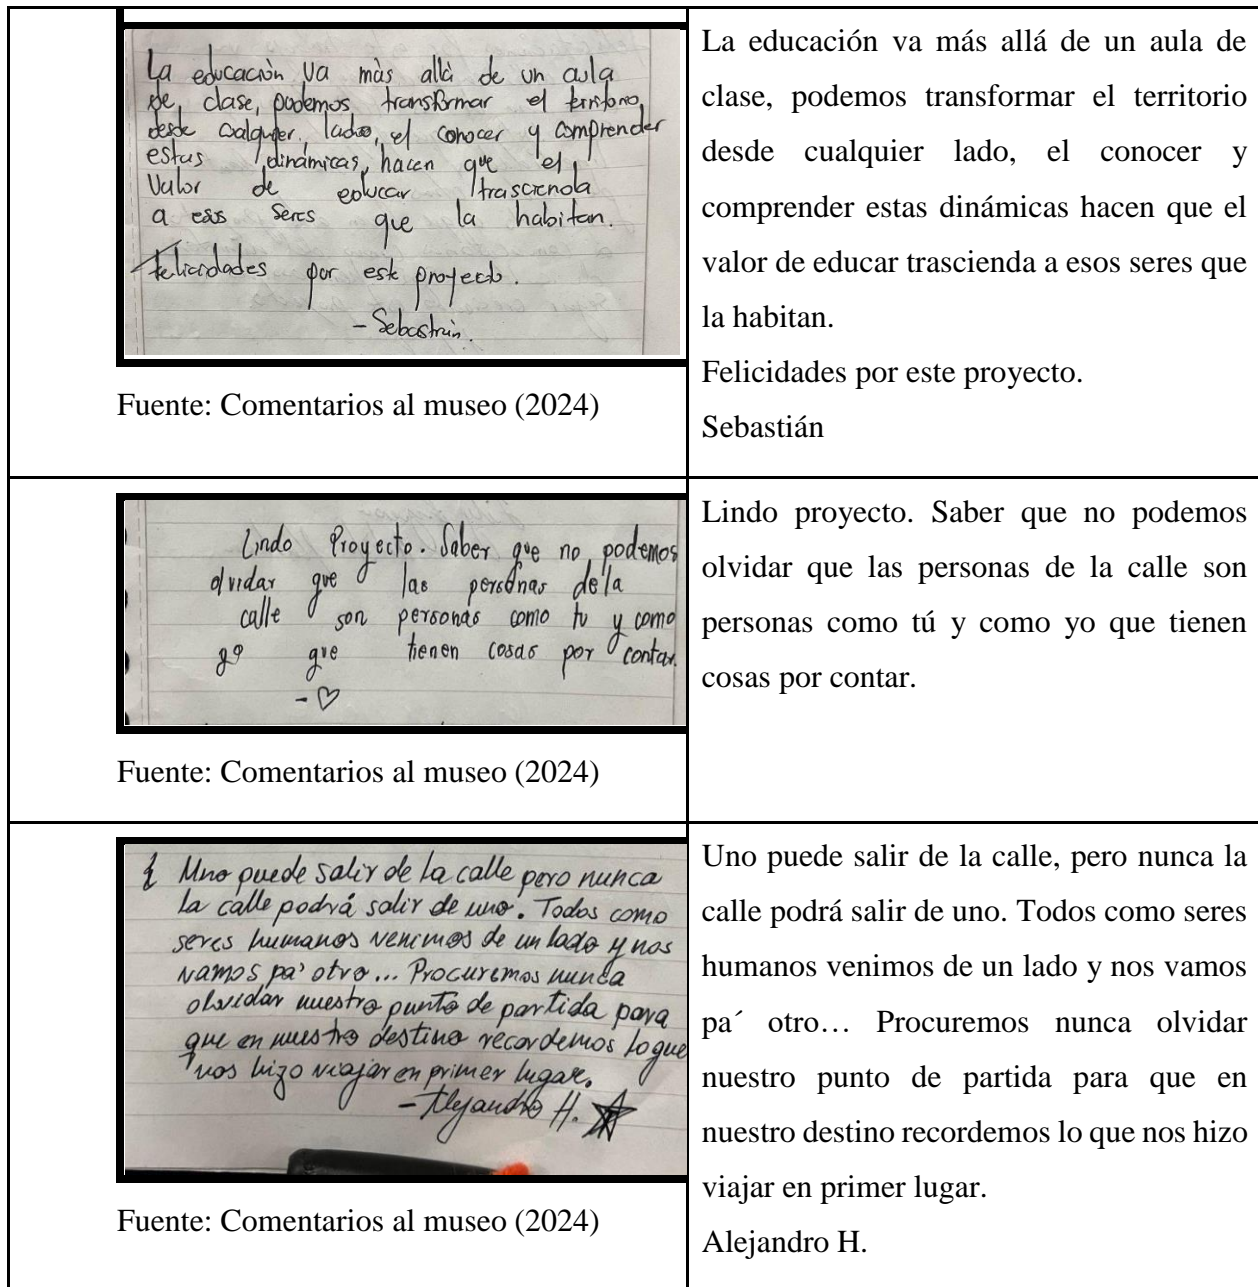 La educaciòn va màs allà de un aula
de clase, podemos transformar el territorio
desde cualquier lado, el conocer y comprender
estas dinámicas, hacen que el
Valor de educar trascienda
a esos seres que la habitan.
Felicidades por este proyecto.
- Sebastián.
Fuente: Comentarios al museo (2024)
La educación va más allá de un aula de
clase, podemos transformar el territorio
desde cualquier lado, el conocer y
comprender estas dinámicas hacen que el
valor de educar trascienda a esos seres que
la habitan.
Felicidades por este proyecto.
Sebastián
Lindo Proyecto. Saber que no podemos
olvidar que las personas de la
calle son personas como tu y como
yo que tienen cosas por contar.
- ♡
Fuente: Comentarios al museo (2024)
Lindo proyecto. Saber que no podemos
olvidar que las personas de la calle son
personas como tú y como yo que tienen
cosas por contar.
Uno puede salir de la calle pero nunca
la calle podrá salir de uno. Todos como
seres humanos venimos de un lado y nos
vamos pa' otro... Procuremos nunca
olvidar nuestro punto de partida para
que en nuestro destino recordemos lo que
nos hizo viajar en primer lugar.
- Alejandro H.
Fuente: Comentarios al museo (2024)
Uno puede salir de la calle, pero nunca la
calle podrá salir de uno. Todos como seres
humanos venimos de un lado y nos vamos
pa´ otro… Procuremos nunca olvidar
nuestro punto de partida para que en
nuestro destino recordemos lo que nos hizo
viajar en primer lugar.
Alejandro H.